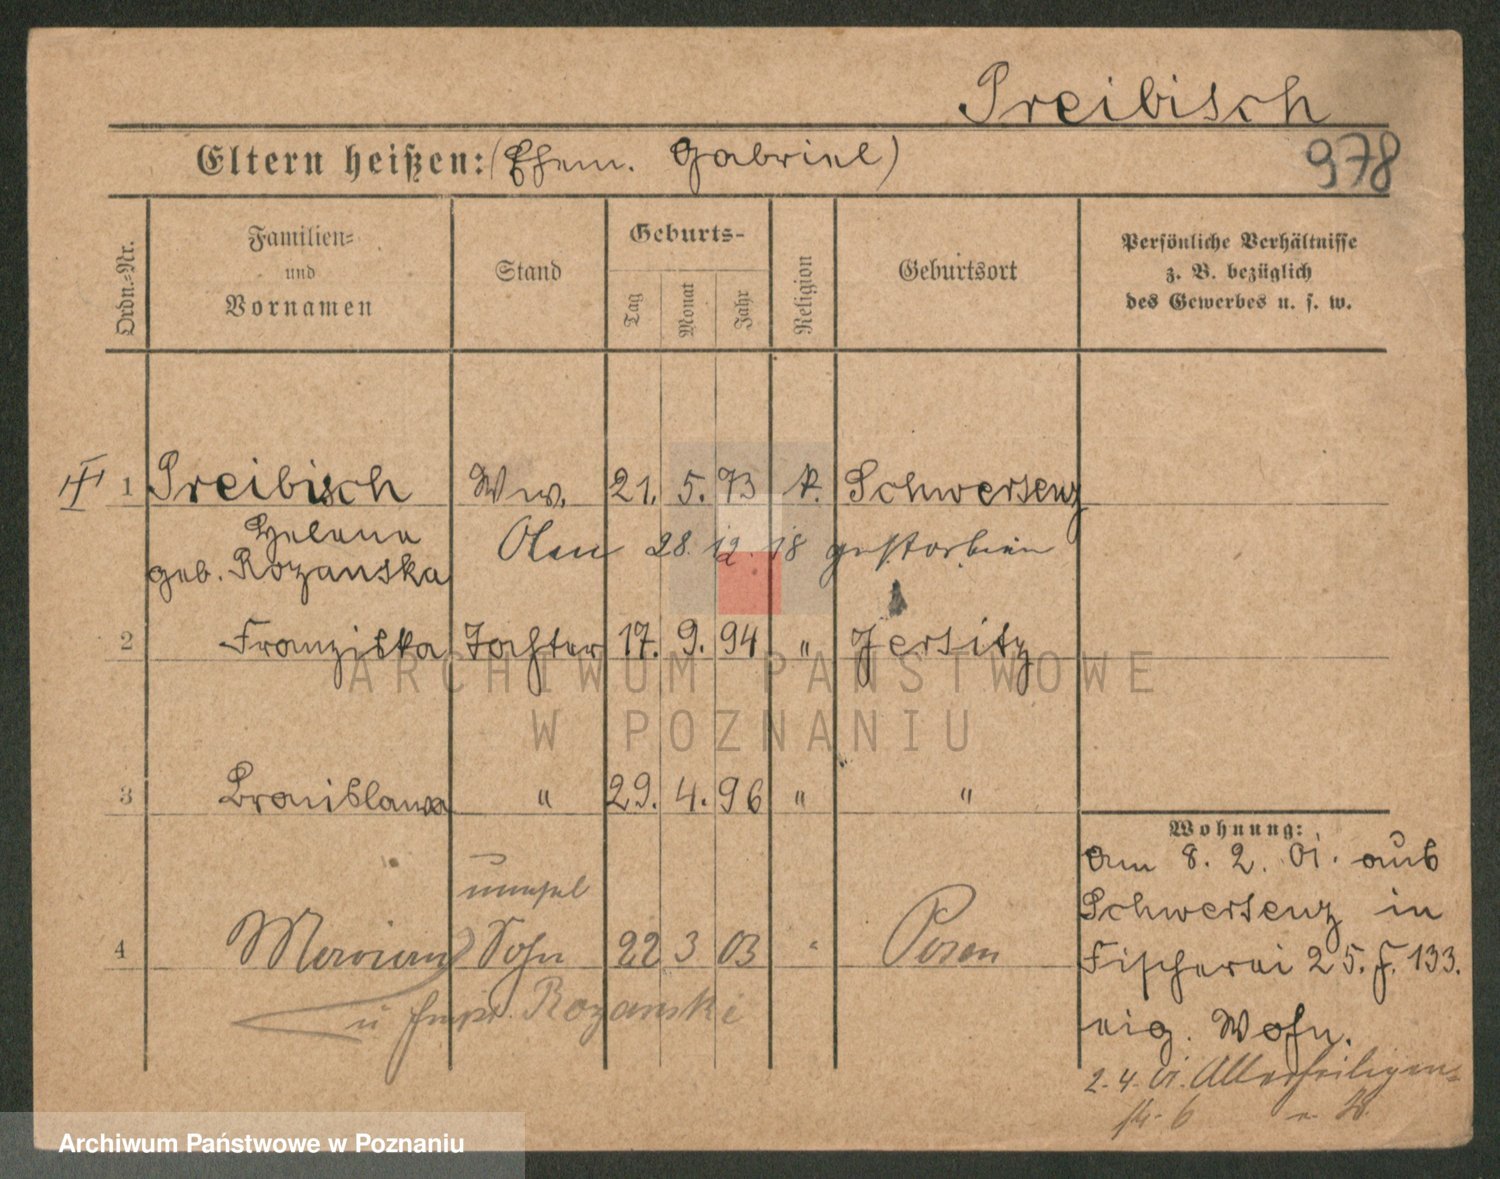 Preibisch
Eltern heißen: (Ehem. Gabriel)
978
Ordn.=Nr.
Familien=
und
Vornamen
Stand
Geburts-
Tag
Monat
Jahr
Religion
Geburtsort
Persönliche Verhältnisse
z. B. bezüglich
des Gewerbes u. s. w.
1 Preibisch Ww. 21. 5. 73 k. Schwersenz
Helena 28. 12. 18 gestorben
geb. Rozanska
2 Franziska Tochter 17. 9. 94 " Jersitz
ARCHIWUM PAŃSTWOWE
W POZNANIU
3 Bronislawa " 29. 4. 96 " "
Wohnung:
am 8. 2. 01. aus
Schwersenz in
Fischerei 25. F. 133.
eig. Wohn.
unehel
4 Sohn 22 3 03 " Posen
Rozanski
2. 4. 01. Allerheiligen-
6
Archiwum Państwowe w Poznaniu